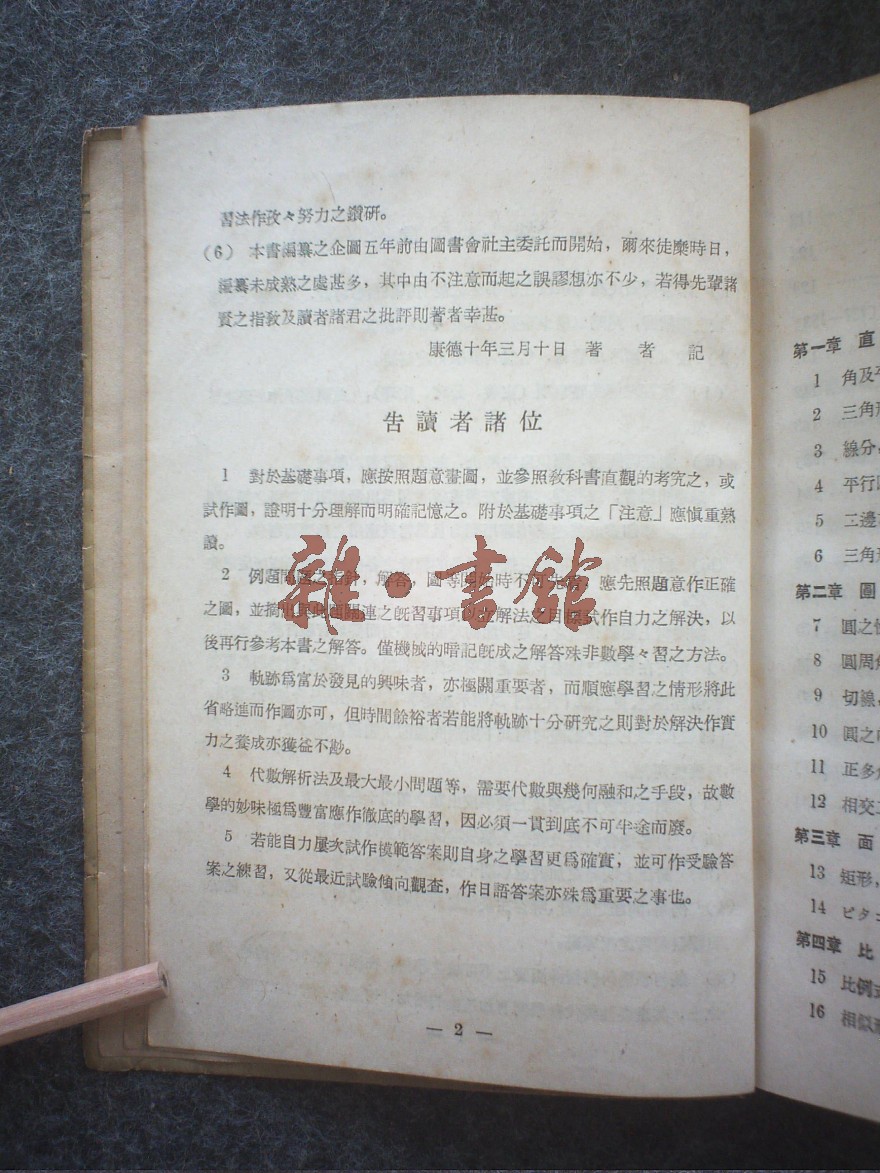 習法作孜々努力之鑽硏。
(6) 本書編纂之企圖五年前由圖書會社主委託而開始，爾來徒樂時日，
編纂未成熟之處甚多，其中由不注意而起之誤謬想亦不少，若得先輩諸
賢之指敎及讀者諸君之批評則著者幸甚。
康德十年三月十日 著 者 記
告讀者諸位
1 對於基礎事項，應按照題意畫圖，並參照敎科書直觀的考究之，或
試作圖，證明十分理解而明確記憶之。附於基礎事項之「注意」應愼重熟
讀。
2 例題問題之指針，解答，圖等開始時不可先看，應先照題意作正確
之圖，並摘出與此題關連之旣習事項 解法之目標試作自力之解決，以
後再行參考本書之解答。僅機械的暗記旣成之解答殊非數學々習之方法。
3 軌跡爲富於發見的興味者，亦極關重要者，而順應學習之情形將此
省略進而作圖亦可，但時間餘裕者若能將軌跡十分硏究之則對於解決作實
力之養成亦獲益不尠。
4 代數解析法及最大最小問題等，需要代數與幾何融和之手段，故數
學的妙味極爲豐富應作徹底的學習，因必須一貫到底不可半途而廢。
5 若能自力屢次試作模範答案則自身之學習更爲確實，並可作受驗答
案之練習，又從最近試驗傾向觀查，作日語答案亦殊爲重要之事也。
— 2 —
雜·書館
第一章 直
1 角及平
2 三角形
3 線分，
4 平行
5 二邊
6 三角形
第二章 圓
7 圓之性
8 圓周角
9 切線，
10 圓之
11 正多角
12 相交二
第三章 面
13 矩形，
14 ピタゴ
第四章 比
15 比例式
16 相似形